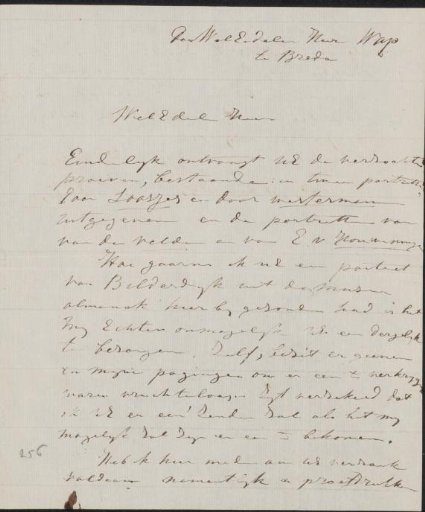 Den WelEdelen Heer Wap
te Breda
WelEdele Heer
Eindelijk ontvangt UE de verzochte
proeven, bestaande in twee portrett
door Loosjes en door Westerman
uitgegeven en de portretten van
van de Velde en van E v
Hoe gaarne ik UE een portret
van Bilderdijk uit de Muzen
almanak hier bij gezonden had is het
mij echter onmogelijk UE een dergelijk
te bezorgen. Zelf bezit er geenen
en mijne pogingen om er een te verkrijgen
waren vruchteloos. Zijt verzekerd dat
ik UE er een zenden zal als het mij
mogelijk zal zijn er een te bekomen.
Heb ik hier mede aan UE verzoek
voldaan namentlijk proefdrukken
256